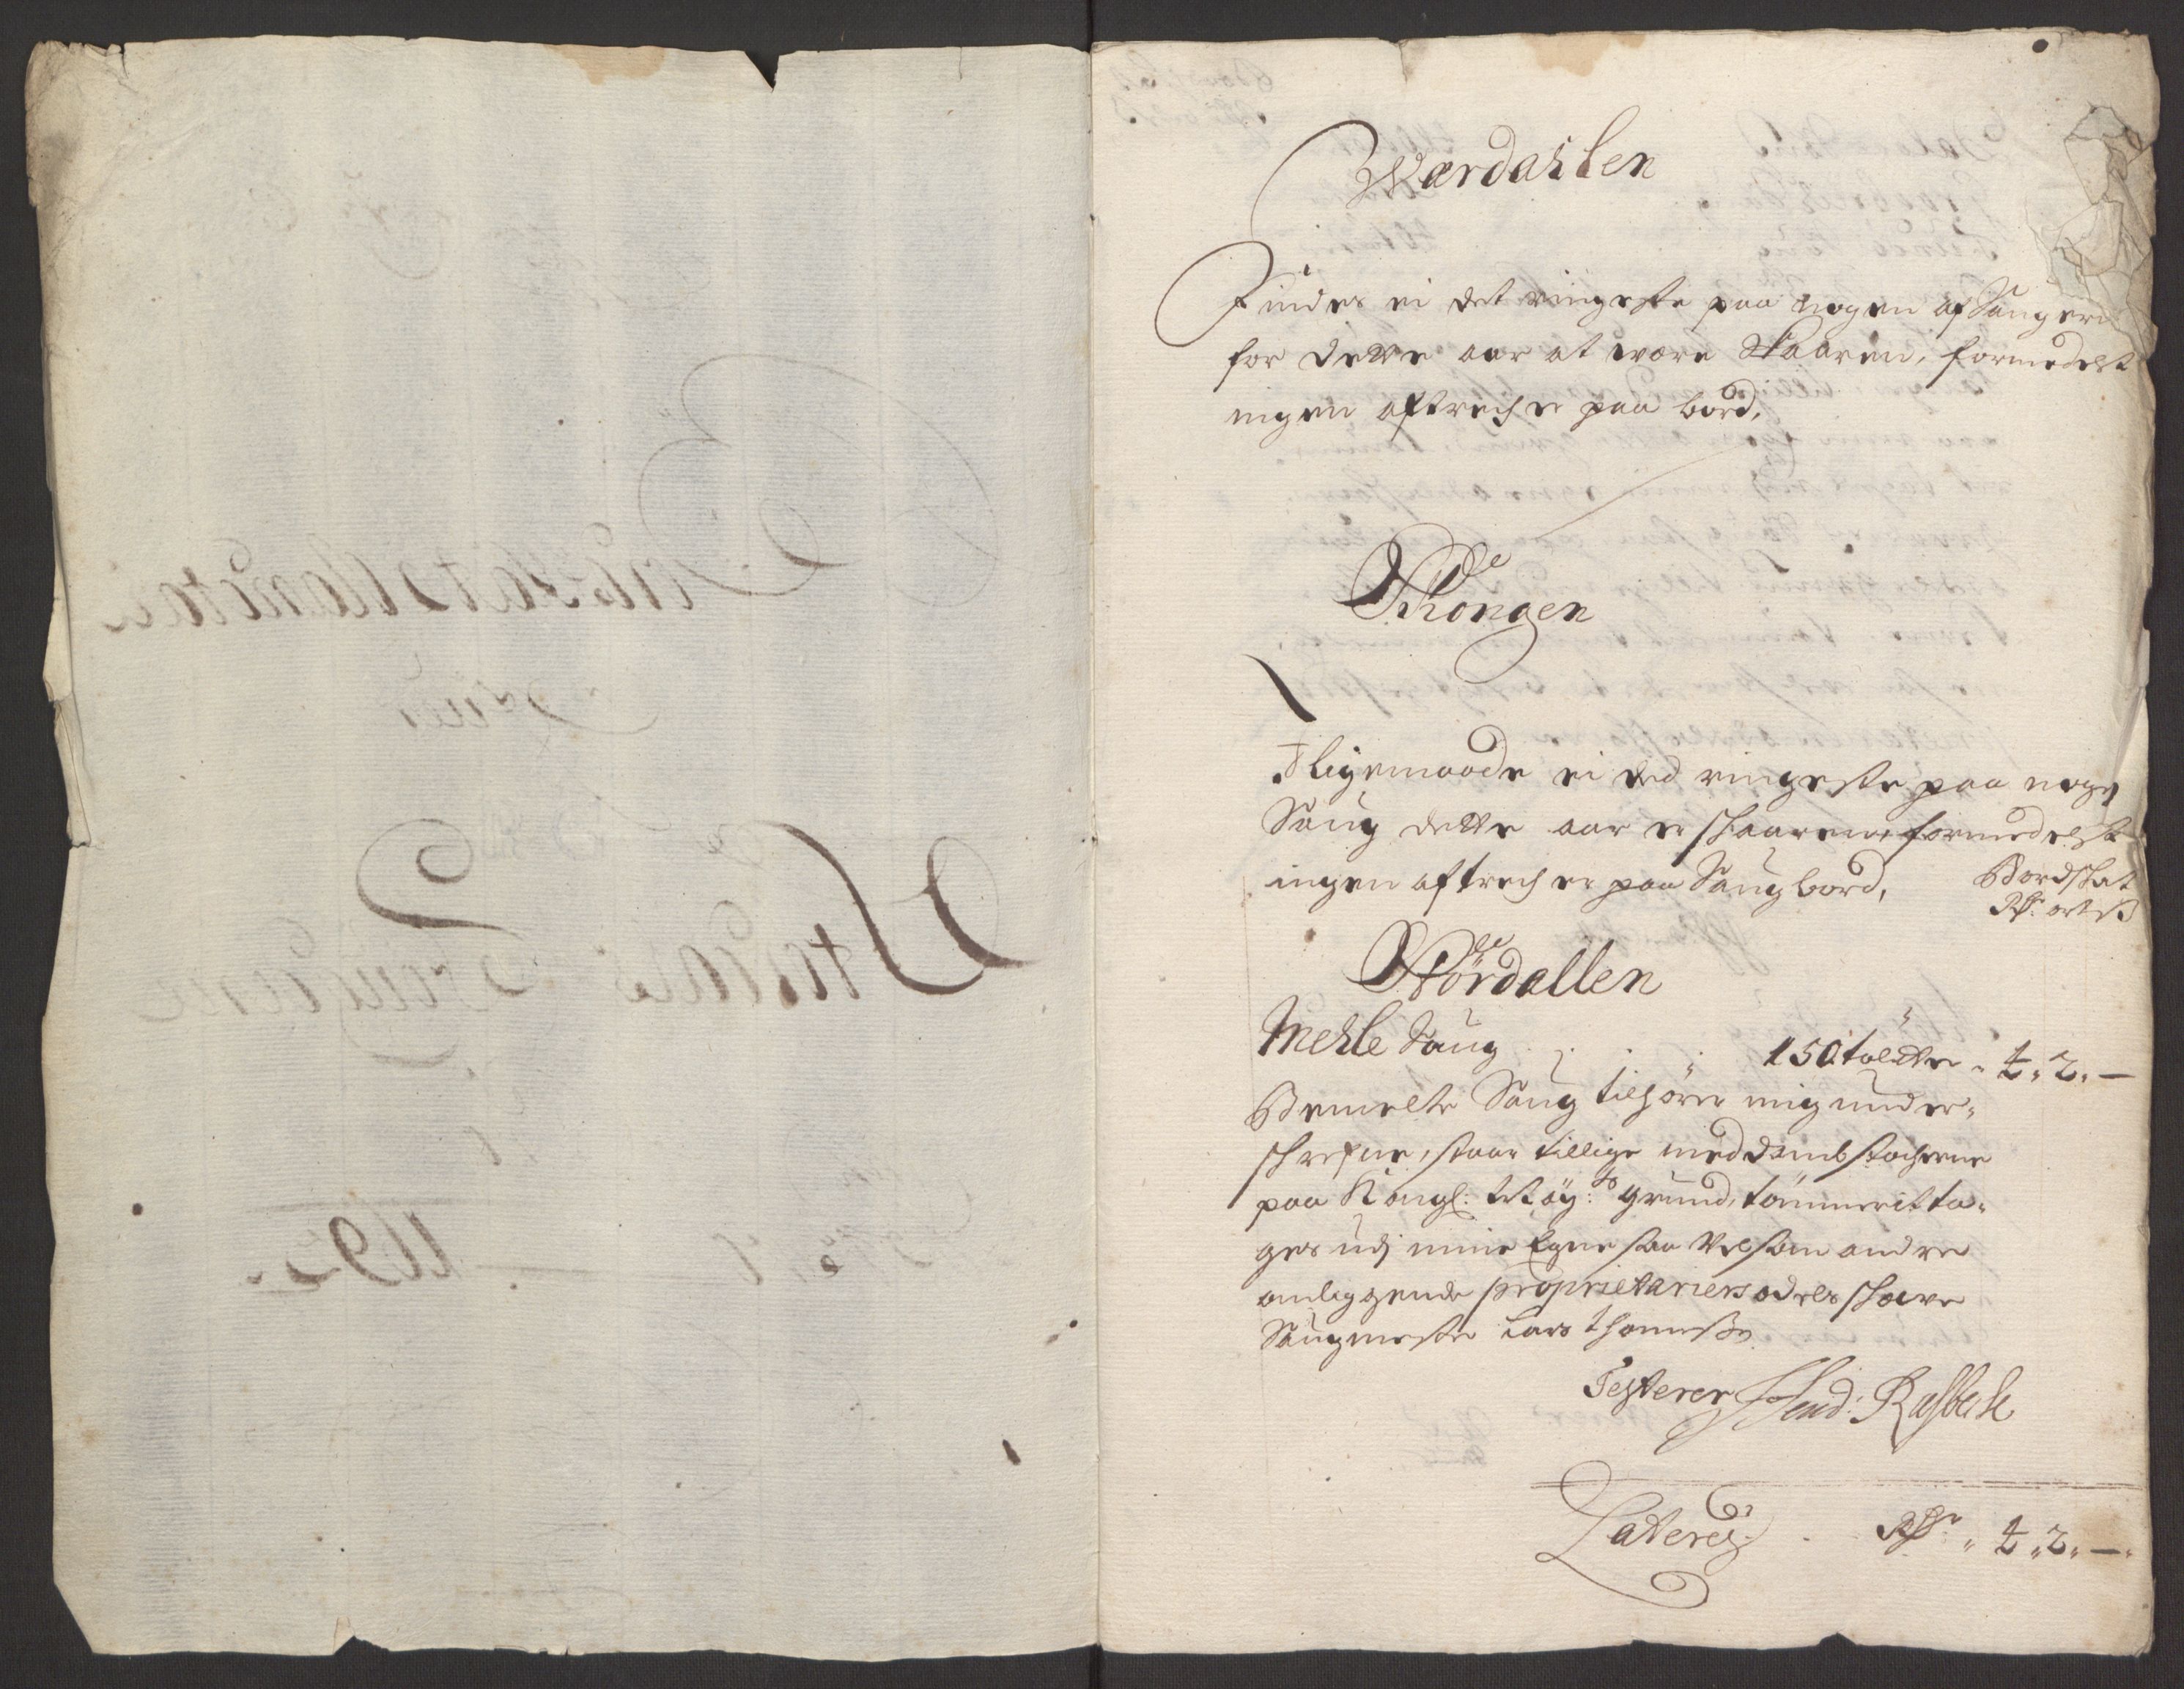 Wærdahlen
Findes ei det ringeste paa nogen af Saugerne
for dette aar at være skaaren, formedelst
ingen aftrech er paa bord,
Schongen
Iligemaade ei ded ringeste paa noge
Saug dette aar er skaaren, formedelst
ingen aftrech er paa Saugbord,
Bordskat
Rdr. ort ß
Størdallen
Mehle Saug . . . 150 tolter „ 4„ 2„ —
Bemelte Saug tilhører mig under„
skrefne, staar tillige med dambstocherne
paa Kongl: May:ts grund, tømmerit ta„
ges udj mine Egne saa vel som andre
omliggende proprietariers odels skove
Saugmester Lars Thomeß:
Testerer Hend:
Lateris . Rdr „ 4„ 2„ —„